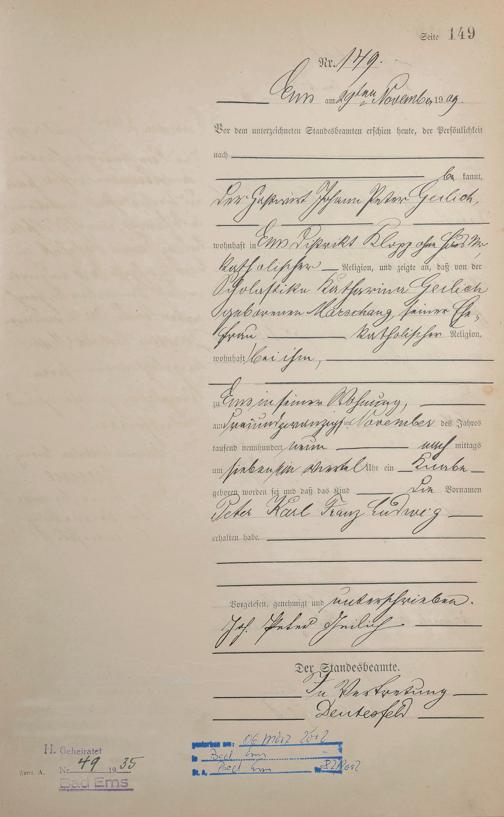 Seite 149
Nr. 149.
Ems am 29ten November 1909.
Vor dem unterzeichneten Standesbeamten erschien heute, der Persönlichkeit
nach
be kannt,
der Gastwirt Johann Peter Geilich,
wohnhaft in Ems Distrikt Klopp ohne Haus Nr.
katholischer Religion, und zeigte an, daß von der
Scholastika Katharina Geilich
geborenen Marschang, seiner Ehe-
frau katholischer Religion,
wohnhaft bei ihm,
zu Ems in seiner Wohnung,
am dreiundzwanzigsten November des Jahres
tausend neunhundert neun nach mittags
um sieben ein viertel Uhr ein Knabe
geboren worden sei und daß das Kind die Vornamen
Peter Karl Franz Ludwig
erhalten habe.
Vorgelesen, genehmigt und unterschrieben.
Joh. Peter Geilich
Der Standesbeamte.
In Vertretung
H. Geheiratet
Nr. 49 1935
Bad Ems
gestorben am: 06. März 2012
in Bad Ems
St. A. Bad Ems Nr.